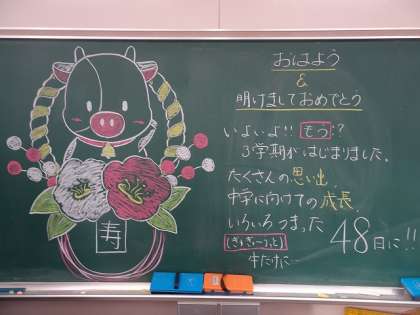 おはよう
&
明けましておめでとう
いよいよ!!もう!?
3学期がはじまりました。
たくさんの思い出、
中学に向けての成長、
いろいろつまった
(ぎゅぎゅーっと)
牛だけに…
48日に!!
寿